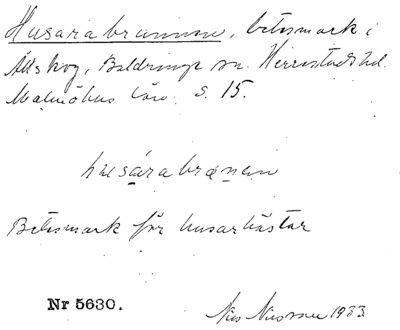 Husarabrunnen, betesmark i
Allskog, Baldringe sn. Herrestads hd.
Malmöhus län. s. 15.
husárabrønen
Betesmark för husarhästar
Nr 5630.
Nils Nilsson 1933.